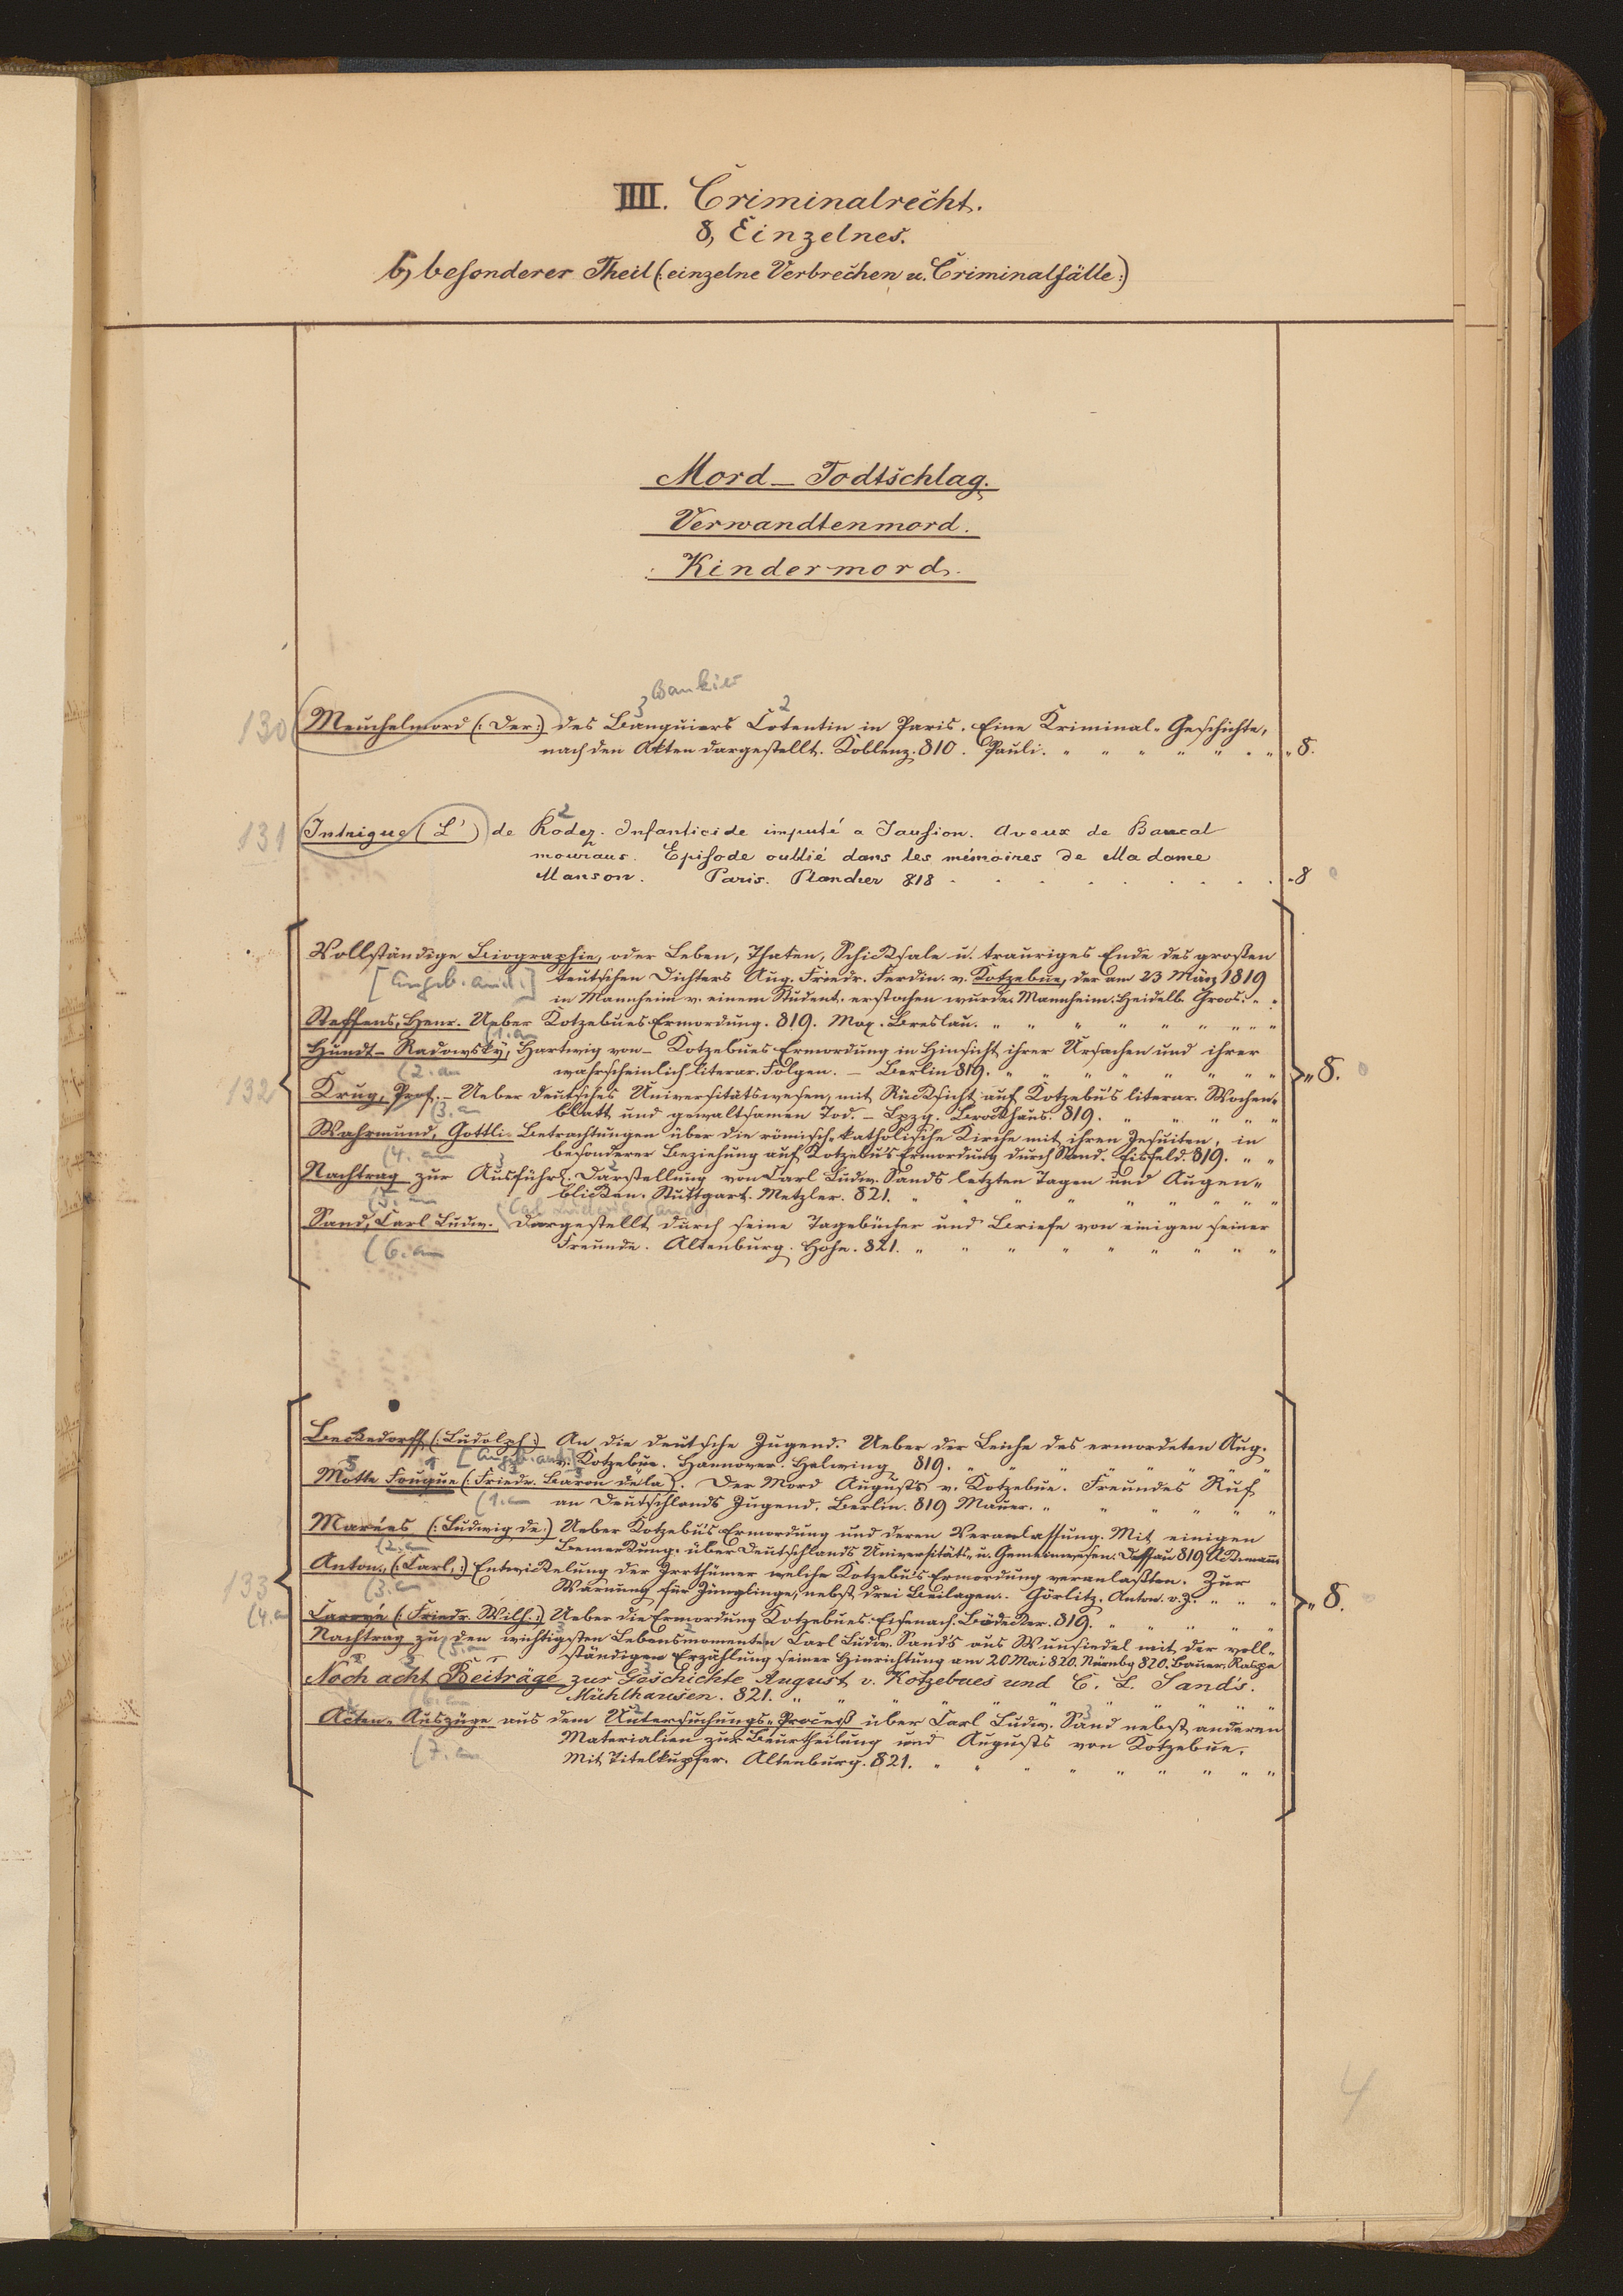 IIII. Criminalrecht.
8, Einzelnes.
b, besonderer Theil (: einzelne Verbrechen u. Criminalfälle :)
Mord – Todtschlag.
Verwandtenmord.
Kindermord.
Bankier
3 2
130 Meuchelmord (: Der :) des Banquiers Cotentin in Paris. Eine Kriminal-Geschichte,
nach den Akten dargestellt. Koblenz. 810. Pauli. " " " " " " " " 8.
2
131 Intrigue (L') de Rodez. Infanticide imputé a Jausion. Aveux de Bancal
mourans. Episode oublié dans les mémoires de Madame
Manson. Paris. Plancher 818 . . . . . . . . " 8
Vollständige Biographie, oder Leben, Thaten, Schicksale u. trauriges Ende des großen
[Angeb. and.] teutschen Dichters Aug. Friedr. Ferdin. v. Kotzebue, der am 23 März 1819
in Mannheim v. einem Student. erstochen wurde. Mannheim. Heidelb. Groos. " "
Steffens, Henr. Ueber Kotzebues Ermordung. 819. Max. Breslau. " " " " " " " " "
(1. an
Hundt-Radowsky, Hartwig von – Kotzebues Ermordung in Hinsicht ihrer Ursachen und ihrer
(2. an wahrscheinlich literar. Folgen. – Berlin 819. " " " " " " " "
132 Krug, Prof. – Ueber deutsches Universitätswesen, mit Rücksicht auf Kotzebu's literar. Wochen- " 8.
(3. an blatt und gewaltsamen Tod. – Lpzg. Brockhaus. 819. " " " " "
Wahrmund, Gottli. Betrachtungen über die römisch-katholische Kirche mit ihren Jesuiten, in
(4. an besonderer Beziehung auf Kotzebu's Ermordung durch Sand. Eisfeld. 819. " "
Nachtrag zur Ausführl. Darstellung von Carl Ludw. Sands letzten Tagen und Augen-
(5. an blicken. Stuttgart. Metzler. 821. " " " " " " " " "
Carl Ludwig Sand
Sand, Carl Ludw. Dargestellt durch seine Tagebücher und Briefe von einigen seiner
(6. an Freunde. Altenburg. Hahn. 821. " " " " " " " " "
Beckedorff (: Ludolph :) An die deutsche Jugend. Ueber der Leiche des ermordeten Aug.
[Angeb. and.] v. Kotzebue. Hannover. Helwing 819. " " " " " " "
Motte Fouque (: Friedr. Baron de la). Der Mord Augusts v. Kotzebue. Freundes Ruf
(1. an an Deutschlands Jugend. Berlin. 819 Maurer. " " " " "
Marées (: Ludwig de :) Ueber Kotzebu's Ermordung und deren Veranlassung. Mit einigen
(2. an Bemerkung. über Deutschlands Universitäts- u. Gemeinwesen. Dessau 819 Ackermann
Anton, (: Carl, :) Entwickelung der Irrthümer welche Kotzebu's Ermordung veranlaßten. Zur
133 (3. an Warnung für Jünglinge, nebst drei Beilagen. Görlitz. Anton. o. J. " " " " 8.
(4. an Carové (: Friedr. Wilh. :) Ueber die Ermordung Kotzebues. Eisenach. Bädecker. 819. " " " " "
Nachtrag zu den wichtigsten Lebensmomenten Carl Ludw. Sands aus Wunsiedel mit der voll-
(5. an ständigen Erzählung seiner Hinrichtung am 20 Mai 820. Nürnbg 820. Bauer, Raspe
Noch acht Beiträge zur Geschichte August v. Kotzebues und C. L. Sand's.
(6. an Mühlhausen. 821. " " " " " " " " "
Acten-Auszüge aus dem Untersuchungs-Proceß über Carl Ludw. Sand nebst anderen
(7. an Materialien zur Beurtheilung und Augusts von Kotzebue.
Mit Titelkupfer. Altenburg. 821. " " " " " " " " "
4